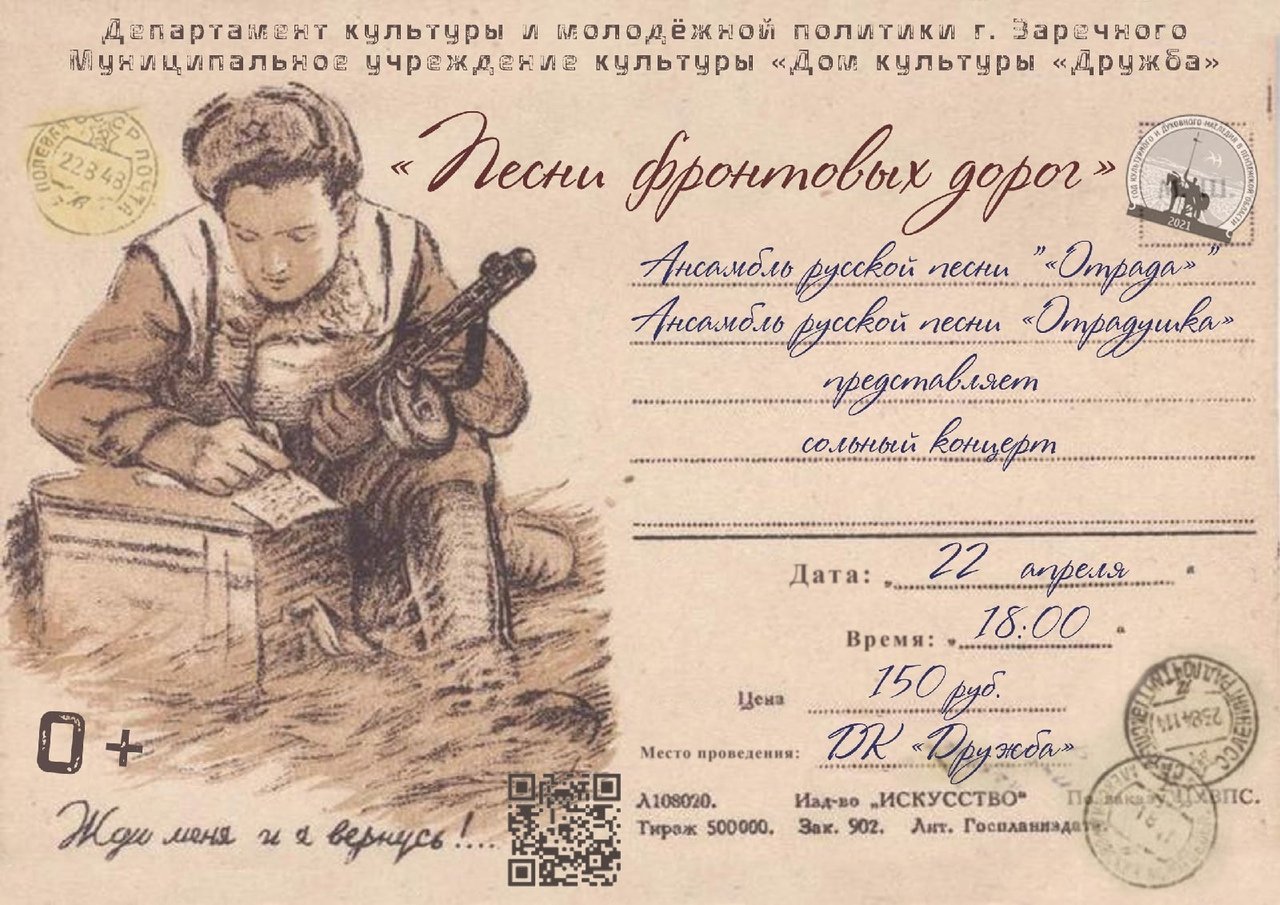 Департамент культуры и молодёжной политики г. Заречного
Муниципальное учреждение культуры «Дом культуры «Дружба»
«Песни фронтовых дорог»
22 8 43
ПОЧТА
ГОД КУЛЬТУРНОГО И ДУХОВНОГО НАСЛЕДИЯ В ПЕНЗЕНСКОЙ ОБЛАСТИ
2021
Ансамбль русской песни "«Отрада»"
Ансамбль русской песни «Отрадушка»
представляет
сольный концерт
Дата: „ 22 апреля "
Время: „ 18:00 "
Цена 150 руб.
Место проведения: ДК «Дружба»
0+
Жди меня и я вернусь!....
Л108020. Изд-во „ИСКУССТВО" По заказу ЦХВПС.
Тираж 500000. Зак. 902. Лит. Госпланиздата